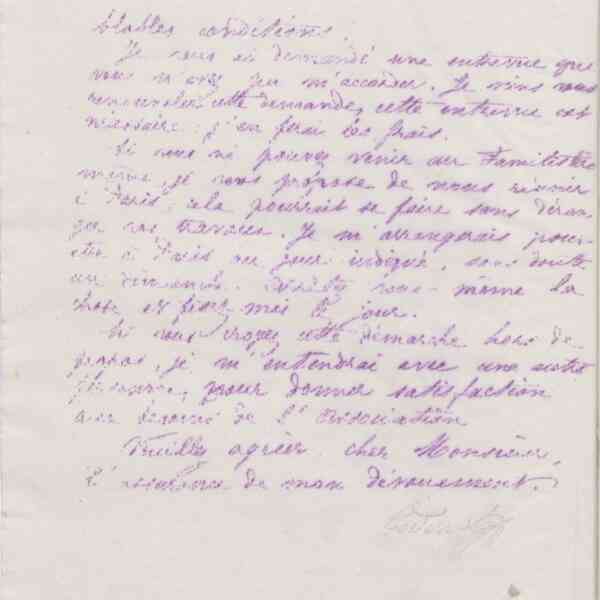 blables conditions.
Je vous ai demandé une entrevue que
vous n'avez pu m'accorder. Je viens vous
renouveler cette demande, cette entrevue est
nécessaire; j'en ferai les frais.
Si vous ne pouvez venir au Familistère
même, je vous propose de nous réunir
à Paris; cela pourrait se faire sans déran-
ger vos travaux. Je m'arrangerais pour
être à Paris au jour indiqué, sans doute
un dimanche. Décidez vous-même la
chose et fixez-moi le jour.
Si vous croyez cette démarche hors de
propos, je m'entendrai avec une autre
personne, pour donner satisfaction
aux besoins de l'Association
Veuillez agréer, cher Monsieur,
l'assurance de mon dévouement.